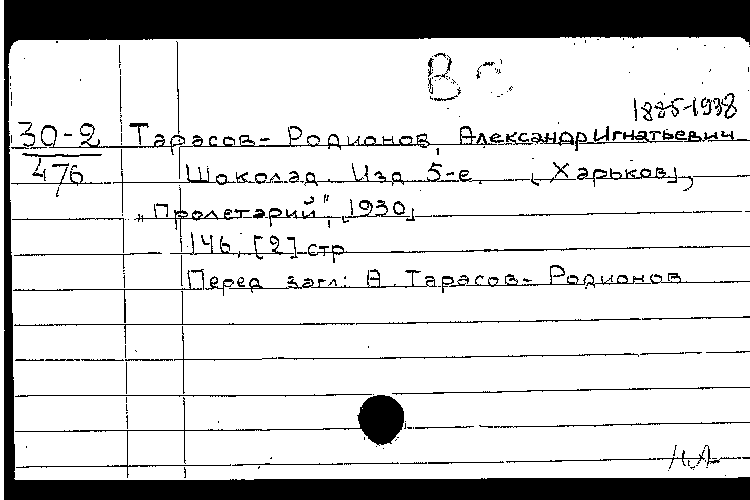 В
1885-1938
30-2 Тарасов-Родионов, Александр Игнатьевич
476 Шоколад. Изд 5-е. [Харьков],
„Пролетарий", [1930]
146, [2] стр
Перед загл: А. Тарасов-Родионов